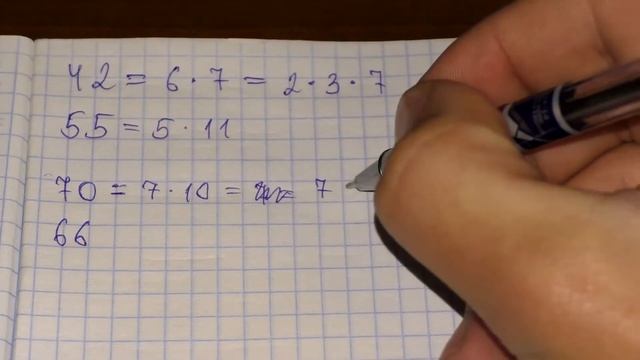 42 = 6 · 7 = 2 · 3 · 7
55 = 5 · 11
70 = 7 · 10 = = 7
66